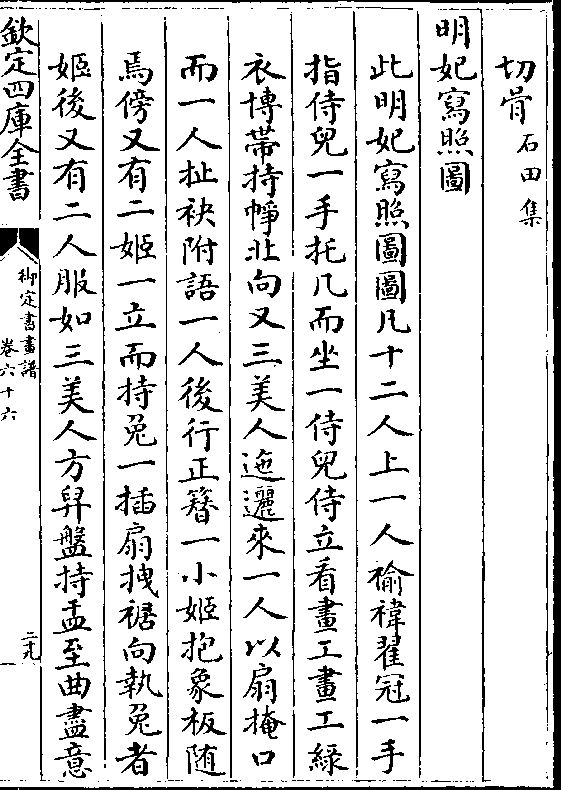 切骨石田集
明妃寫照圖
此明妃寫照圖圖凡十二人上一人褕褘翟冠一手
指侍兒一手托几而坐一侍兒侍立看畫工畫工緑
衣博帶持幀北向又三美人迤邐來一人以扇掩口
而一人扯袂附語一人後行正簪一小姬抱象板随
焉傍又有二姬一立而持兔一插扇拽裾向執兔者
姬後又有二人服如三美人方舁盤持盂至曲盡意
欽定四庫全書
御定書畫譜
卷六十六
二九